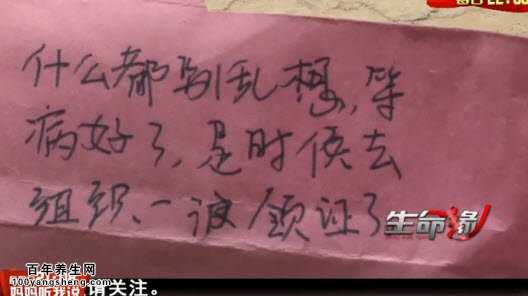 什么都别乱想,等
病好了,是时候去
组织一波领证了
生命缘
百年养生网
100yangsheng.com
请关注。